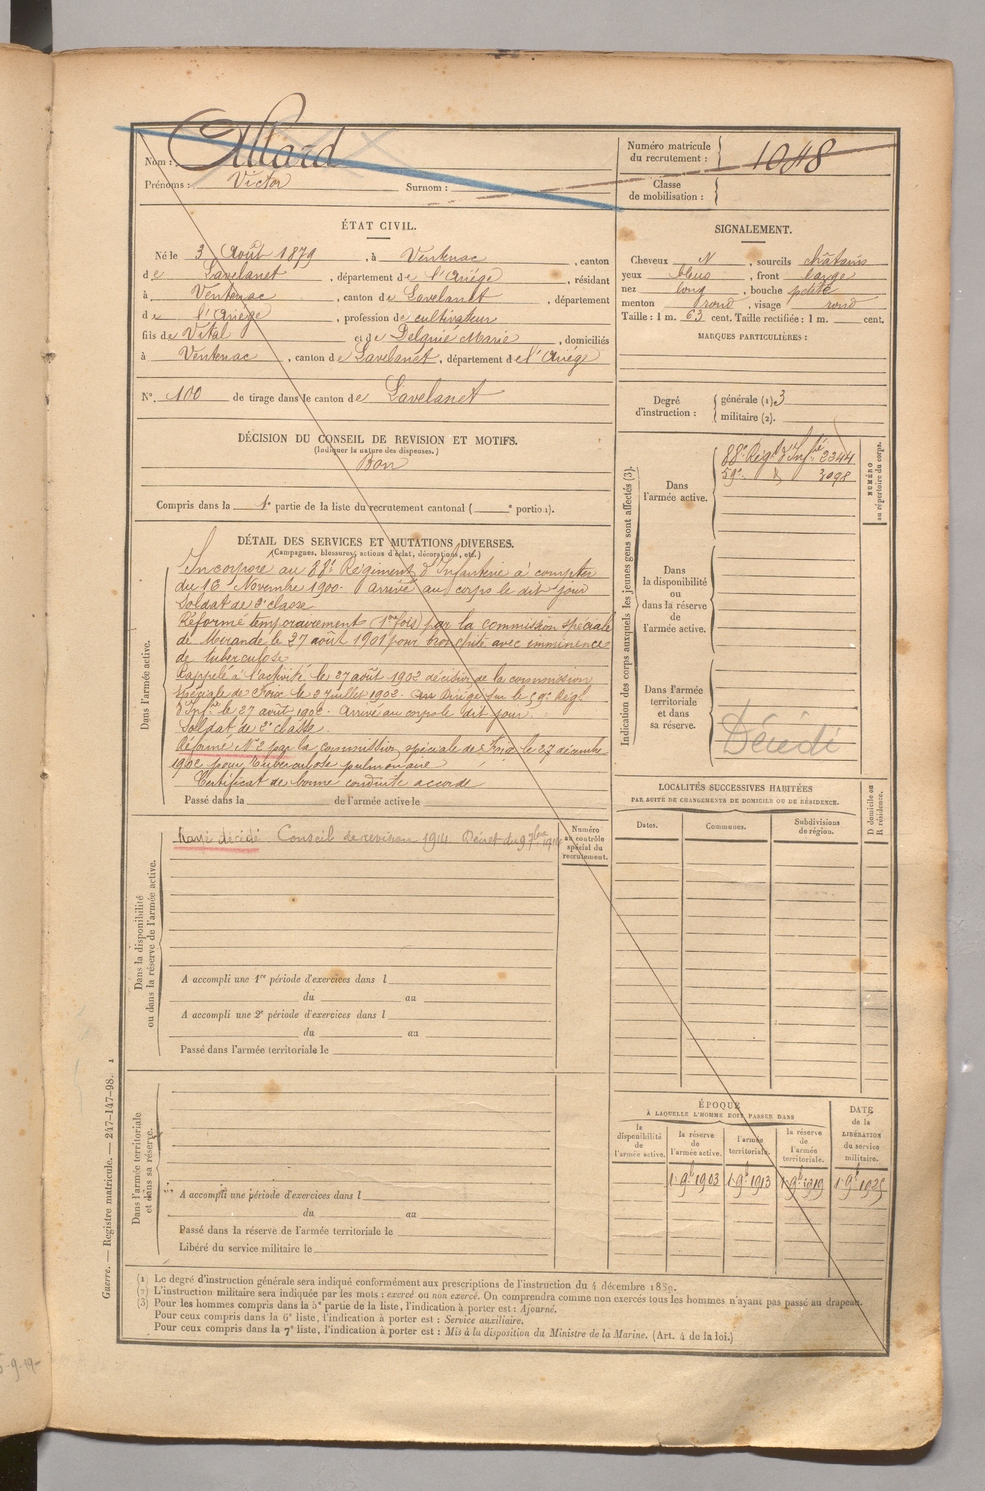 Nom : Allard
Prénoms : Victor Surnom :
Numéro matricule du recrutement : 1048
Classe de mobilisation :
ÉTAT CIVIL.
Né le 3 Août 1879, à Ventenac, canton
de Lavelanet, département de l'Ariège, résidant
à Ventenac, canton de Lavelanet, département
d e l'Ariège, profession de cultivateur
fils de Vital et de Delguié Marie, domiciliés
à Ventenac, canton de Lavelanet, département de l'Ariège
N° 100 de tirage dans le canton de Lavelanet
SIGNALEMENT.
Cheveux N, sourcils châtains
yeux bleus, front large
nez long, bouche petite
menton rond, visage rond
Taille : 1 m. 63 cent. Taille rectifiée : 1 m. cent.
MARQUES PARTICULIÈRES :
Degré d'instruction : générale (1) 3
militaire (2).
DÉCISION DU CONSEIL DE REVISION ET MOTIFS.
(Indiquer la nature des dispenses.)
Bon
Compris dans la 1e partie de la liste du recrutement cantonal ( e portion).
DÉTAIL DES SERVICES ET MUTATIONS DIVERSES.
(Campagnes, blessures, actions d'éclat, décorations, etc.)
Dans l'armée active.
Incorporé au 88e Régiment d'Infanterie à compter
du 16 Novembre 1900. Arrivé au corps le dit jour
Soldat de 2e classe
Réformé temporairement (1re fois) par la commission spéciale
de Mirande, le 27 août 1901 pour bronchite avec imminence
de tuberculose
Rappelé à l'activité le 27 août 1902 décision de la commission
spéciale de Foix le 2 juillet 1902. Dirigé sur le 59e Régt
d'Infie le 27 août 1902. Arrivé au corps le dit jour.
Soldat de 2e classe
Réformé N° 2 par la commission spéciale de Foix le 27 décembre
1902 pour Tuberculose pulmonaire
Certificat de bonne conduite accordé
Passé dans la de l'armée active le
Indication des corps auxquels les jeunes gens sont affectés (3).
NUMÉRO au répertoire du corps.
Dans l'armée active.
88e Régt d'Infie 2344
59e d° 3098
Dans la disponibilité ou dans la réserve de l'armée active.
Dans l'armée territoriale et dans sa réserve.
Décédé
LOCALITÉS SUCCESSIVES HABITÉES
PAR SUITE DE CHANGEMENTS DE DOMICILE OU DE RÉSIDENCE.
Dates. Communes. Subdivisions de région. D domicile ou R résidence.
Dans la disponibilité ou dans la réserve de l'armée active.
décédé Conseil de revision 1914 Décret du 9 7bre 1914
Numéro au contrôle spécial du recrutement.
A accompli une 1re période d'exercices dans l
du au
A accompli une 2e période d'exercices dans l
du au
Passé dans l'armée territoriale le
Dans l'armée territoriale et dans sa réserve.
A accompli une période d'exercices dans l
du au
Passé dans la réserve de l'armée territoriale le
Libéré du service militaire le
ÉPOQUE
À LAQUELLE L'HOMME DOIT PASSER DANS
la disponibilité de l'armée active. la réserve de l'armée active. l'armée territoriale. la réserve de l'armée territoriale. DATE de la LIBÉRATION du service militaire.
1 9b 1903 1 9b 1913 1 9b 1919 1 9b 1925
Guerre. — Registre matricule. — 247-147-98. 1
(1) Le degré d'instruction générale sera indiqué conformément aux prescriptions de l'instruction du 4 décembre 1889.
(2) L'instruction militaire sera indiquée par les mots : exercé ou non exercé. On comprendra comme non exercés tous les hommes n'ayant pas passé au drapeau.
(3) Pour les hommes compris dans la 5e partie de la liste, l'indication à porter est : Ajourné.
Pour ceux compris dans la 6e liste, l'indication à porter est : Service auxiliaire.
Pour ceux compris dans la 7e liste, l'indication à porter est : Mis à la disposition du Ministre de la Marine. (Art. 4 de la loi.)